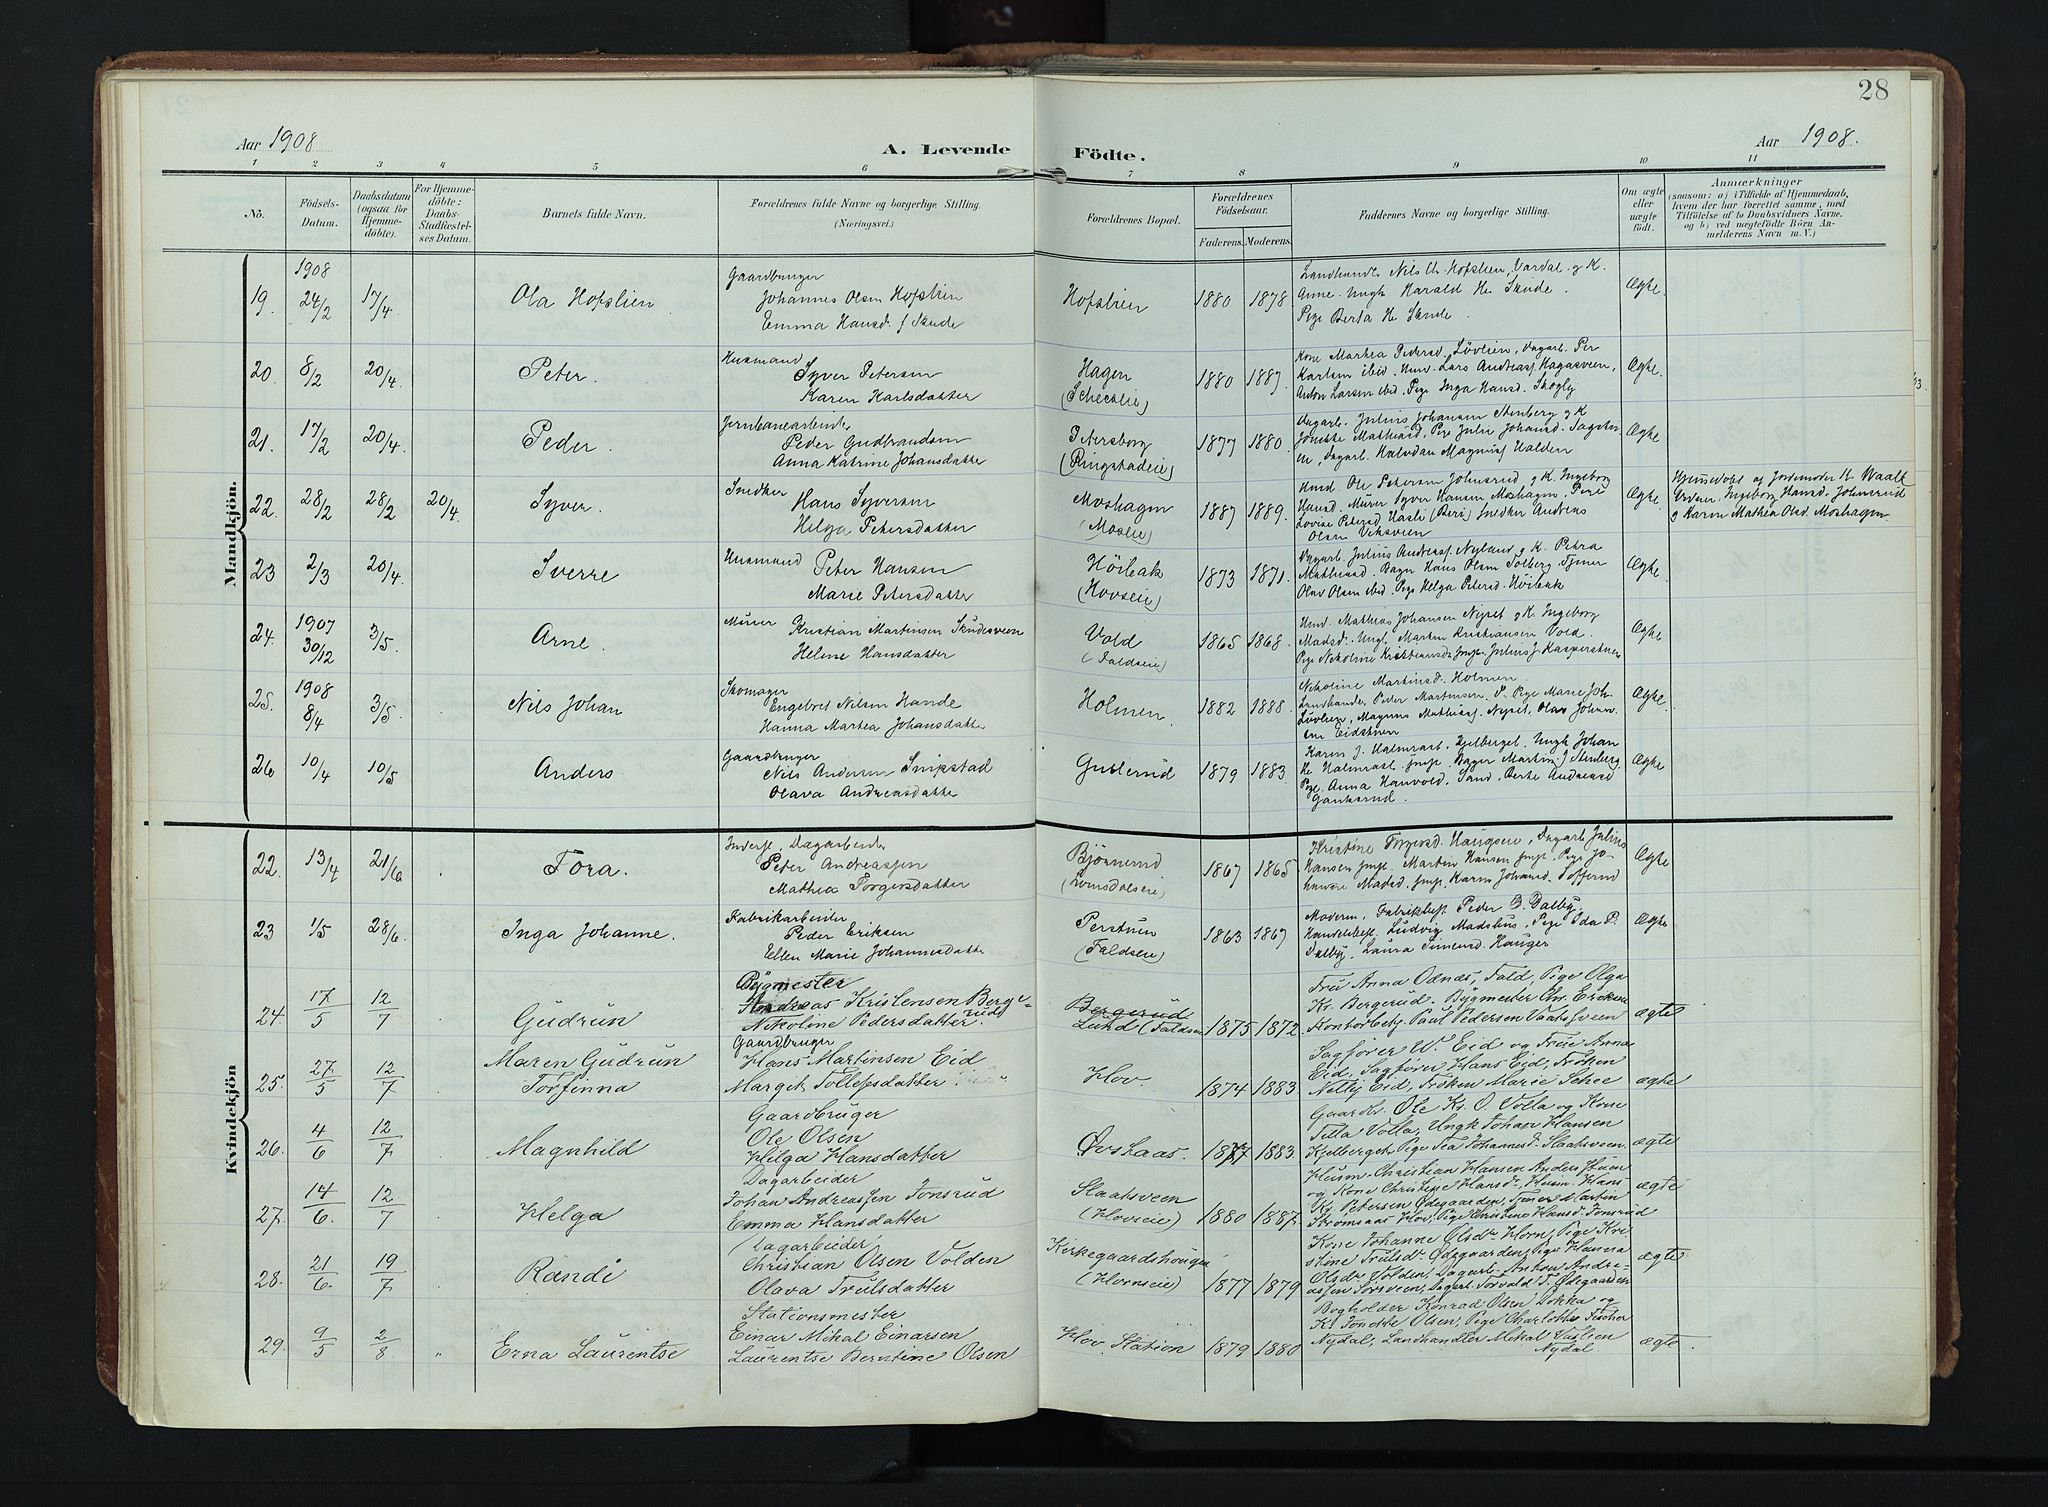 28
Aar 1908
A. Levende Födte.
Aar 1908.
1 2 3 4 5 6 7 8 9 10 11
No.
Födsels-
Datum.
Daabsdatum
(ogsaa for
Hjemme-
döbte).
For Hjemme-
döbte:
Daabs-
Stadfæstel-
ses Datum.
Barnets fulde Navn.
Forældrenes fulde Navne og borgerlige Stilling.
(Næringsvei.)
Forældrenes Bopæl.
Forældrenes
Födselsaar.
Faderens. Moderens.
Faddernes Navne og borgerlige Stilling.
Om ægte
eller
uægte
födt.
Anmærkninger
(saasom: a) i Tilfælde af Hjemmedaab,
hvem der har forrettet samme, med
Tilföielse af to Daabsvidners Navne,
og b) ved uægtefödte Börn An-
melderens Navn m. V.)
Mandkjön.
19. 1908 24/2 17/4. Ola Hofslien
Gaardbruger
Johannes Olsen Hofslien
Emma Hansd. f. Skude
Hofslien 1880 1878
Landhandl. Nils Chr. Hofslien, Vardal og K.
Anne. Ungk Harald H. Skude.
Pige Berta H. Skude.
Ægte.
20. 8/2 20/4. Peter.
Husmand
Syver Petersen
Karen Karlsdatter
Hagen 1880 1887.
Kone Marthea Pedersd. Lövlien, Dagarb. Per
Karlsen ibid. Hmd. Lars Andreass. Hagasveen,
Anton Larsen ibid, Pige Inga Hansd. Skogly
Ægte.
21. 17/2 20/4. Peder.
Jernbanearbeider
Peder Gudbrandsen
Anna Katrine Johansdatter
(Ringstadeie) 1877 1880.
Dagarb. Julius Johansen Stenberg og K
Dagarb. Halvdan Magnuss. Halden
Ægte
22. 28/2 28/2 20/4. Syver.
Snedker
Hans Syversen
Helga Petersdatter
Moshagen
(Moseie) 1887 1889.
Hmd. Ole Petersen Johnsrud og K. Ingeborg
Hansd. Murer Syver Hansen Moshagen, Pige
Lovise Petersd. Snedker Andreas
Olsen
Ægte
Hjemmedöbt af Jordemoder H. Waalt
Ingeborg Hansd. Johnsrud
og Karen Mathea Olsd. Moshagen.
23 2/3 20/4. Sverre
Husmand
Peter Hansen
Marie Petersdatter
Höibak
(Hovseie) 1873 1871.
Dagarb. Julius Andreass. Nyland og K. Petra
Mathisd. Hans Olsen Solberg. Tjener
Olav Olsen ibid. Pige Helga Petersd. Höibak
Ægte.
24. 1907 30/12 3/5. Arne.
Murer
Kristian Martinsen Skudesveen
Helene Hansdatter
Vold
(Faldseie) 1865 1868.
Hmd. Mathias Johansen Nyset og K. Ingeborg
Madsd. Ungk. Martin Kristiansen Vold.
Pige Nikoline Kristiansd.
Ægte
25. 1908 8/4 3/5. Nils Johan
Skomager
Engebret Nilsen Hande
Hanna Marthea Johansdatter
Holmen. 1882 1888.
Nikoline Martinsd. Holmen.
Landhandler Peder Martinsen. Pige Marie Joh.
Lövlien, Magnus Mathiass. Nyset,
Ægte.
26 10/4 10/5 Anders.
Gaardbruger
Nils Andersen Snipstad
Olava Andreasdatter
Guslerud 1879 1883.
Karen J. Halmrast. Kjelberget. Ungk. Johan
Pige. Anna Hauvold, Sand,
Ægte
Kvindekjön
22. 13/4 21/6 Tora.
Inderst, Dagarbeider
Peter Andreassen
Mathea Torgersdatter
Björnerud 1867 1865.
Kristine Torgersd. Haugseie, Dagarb. Julius
Hansen Martin Hansen Pige Jo-
Ægte
23 1/5 28/6. Inga Johanne.
Fabrikarbeider
Peder Eriksen
Ellen Marie Johannesdatter
Perstuen
(Faldseie) 1863 1867
Moderen, Fabrikbest. Peder B. Dalby,
Handelsbest. Ludvig Madshus, Pige Ida P.
Dalby. Laura Simensd. Hauger
Ægte
24. 17/5 12/7 Gudrun
Bygmester
Andreas Kristensen Berge-
rud
Nikoline Pedersdatter.
Bergerud
Lund (Faldseie) 1875 1872.
Frü Anna Odnæs, Fald, Pige Olga
Kr. Bergerud. Bygmester Chr. Eriksen
Kontorbetj. Paul Pedersen Vaatsveen
ægte
25. 27/5 12/7 Maren Gudrun
Torfinna
Gaardbruger
Hans Martinsen Eid
Margit Tollefsdatter
Hov. 1874 1883
Sagförer W. Eid og Frue Anna
Eid, Sagförer Hans Eid, Fröken
Nelly Eid, Fröken Marie Schee
ægte
26. 4/6 12/7 Magnhild
Gaardbruger
Ole Olsen
Helga Hansdatter
Øvshaas. 1877 1883
Gaardbr. Ole Kr. O. Volla og Kone
Tilla Volla, Ungk Johan Hansen
Kjelberget, Pige Tea Johannesd. Slaatsveen.
ægte
27. 14/6. 12/7 Helga
Dagarbeider
Johan Andreassen Jonsrud
Emma Hansdatter
Slaatsveen
(Hovseie) 1880 1887.
Husm. Christian Hansen Anders Stuen
og Kone Christine Hansdr, Husm. Hans
Kr. Petersen Ødegaarden, Tjener Martin
Strömsaas Hov, Pige Christine Hansd. Jonsrud
ægte
28. 21/6. 19/7 Randi
(Dagarbeider)
Christian Olsen Volden
Olava Trulsdatter
Kirkegaardshougen
(Hovseie) 1877 1879
Kone Johanne Olsdr Horn, Pige Kri-
stine Trulsdr. Ødegaarden, Pige Hanna
Olsdr Volden, Dagarb. Anton Andre-
assen Sörsveen, Dagarb. Torvald T. Ødegaarden
ægte
29. 9/5 2/8 " Erna Laurentse
Stationsmester
Einar Mikal Einarsen
Laurentse Berntine Olsen
Hov. Station 1879 1880
Bogholder Konrad Olsen Dokka og
K. Jonette Olsen, Pige Charlotte Fischer
Nydal, Landhandler Mikal Vaslien
Nydal.
ægte.